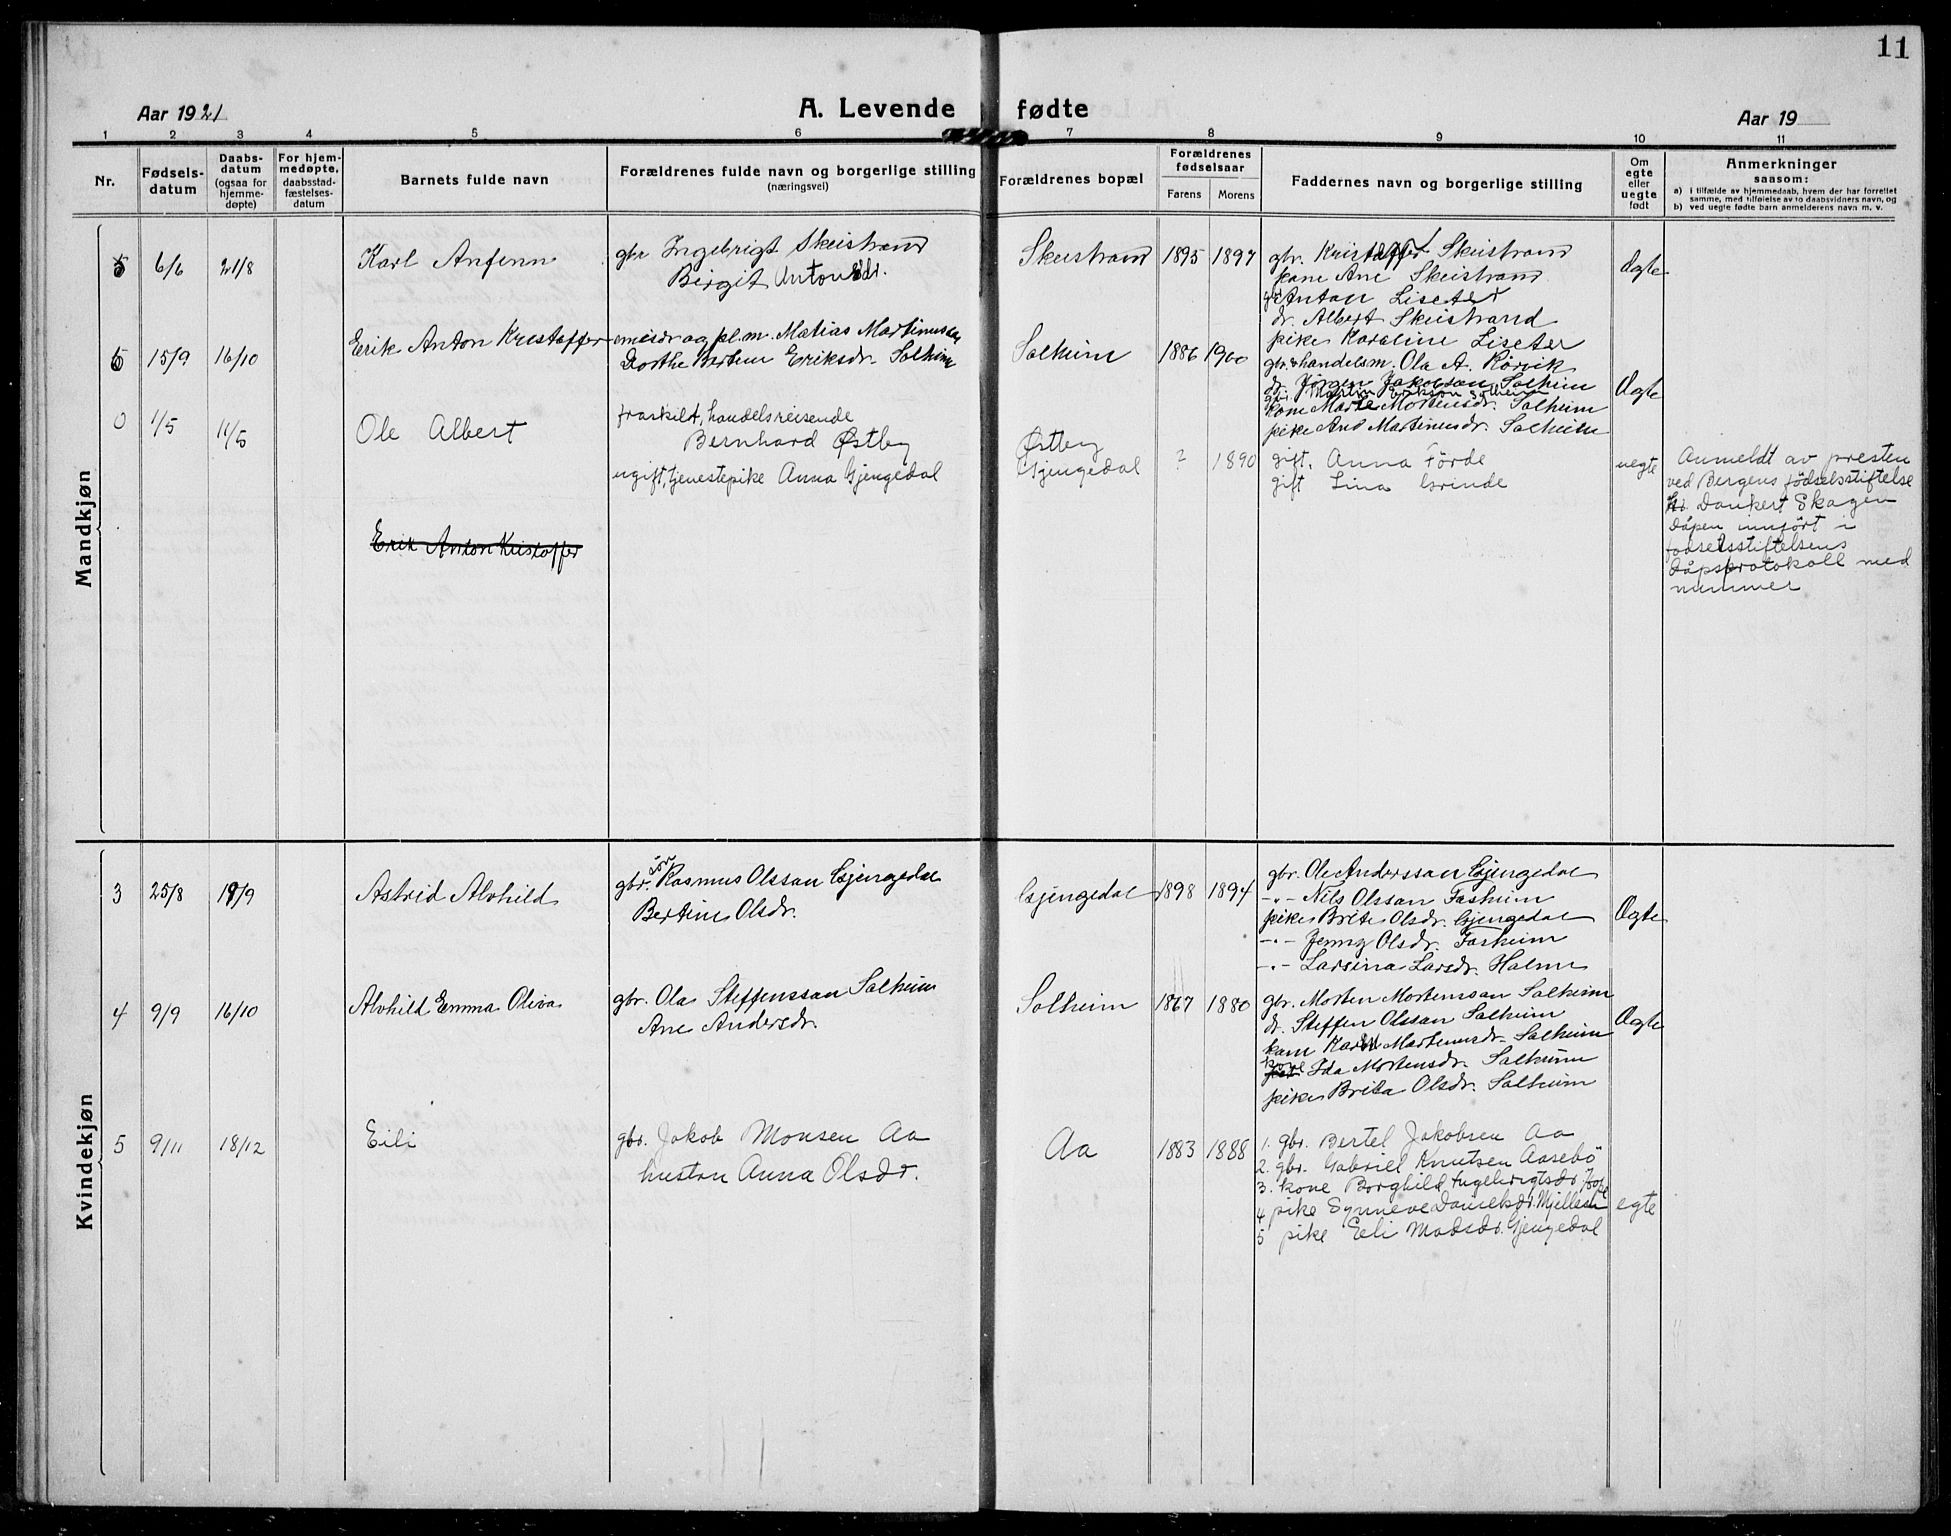 11
Aar 1921
A. Levende fødte
Aar 19
1 2 3 4 5 6 7 8 9 10 11
Nr.
Fødsels-
datum
Daabs-
datum
(ogsaa for
hjemme-
døpte)
For hjem-
medøpte,
daabsstad-
fæstelses-
datum
Barnets fulde navn
Forældrenes fulde navn og borgerlige stilling
(næringsvei)
Forældrenes bopæl
Forældrenes
fødselsaar
Farens Morens
Faddernes navn og borgerlige stilling
Om
egte
eller
uegte
født
Anmerkninger
saasom:
a) i tilfælde av hjemmedaab, hvem der har forrettet
samme, med tilføielse av to daabsvidners navn, og
b) ved uegte fødte barn anmelderens navn m. v.
Mandkjøn
5 6/6 21/8 Karl Anfinn
gbr Ingebrigt Skeistrand
Birgit Antonsdr.
Skeistrand 1895 1897
gbr. Kristoffer Skeistrand
kone Ane Skeistrand
gbr Anton Liseter
dr. Albert Skeistrand
pike Karoline Liseter
Ægte
6 15/9 16/10 Erik Anton Kristoffer
emisær og pl.m. Matias Martinussen
Dorthe Bertine Eriksdr. Solheim
Solheim 1886 1900
gbr. & handelsm. Ola A. Rörvik
dr. Jørgen Jakobsan Solheim
gbr. Martin Erikson Solheim
kone Marte Mortensdr. Solheim
pike Ane Martinusdr. Solheim
Ægte
0 1/5 11/5 Ole Albert
fraskilt, handelsreisende
Bernhard Østby
ugift, tjenestepike Anna Gjengedal
Østby
Gjengedal
? 1890
gift. Anna Förde
gift Lina Grinde
uegte
Anmeldt av presten
ved Bergens fødselsstiftelse
Hr. Dankert Skagen
Dåpen innfört i
fødselsstiftelsens
Dåpsprotokoll med
nummer
Erik Anton Kristoffer
Kvindekjøn
3 25/8 18/9 Astrid Alvhild
gbr. sön Rasmus Olssan Gjengedal
Bertine Olsdr.
Gjengedal 1898 1894
gbr. Ole Anderssan Gjengedal
-"- Nils Olssan Fosheim
pike Brite Olsdr. Gjengedal
-"- Jenny Olsdr. Fosheim
-"- Larsina Larsdr. Holme
Ægte
4 9/9 16/10 Alvhild Emma Oliva
gbr. Ola Steffenssan Solheim
Ane Andersdr.
Solheim 1867 1880
gbr. Morten Mortenson Solheim
dr. Steffen Olssan Solheim
kone Karen Martinusdr. Solheim
kone Ida Mortensdr. Solheim
pike Brita Olsdr. Solheim
Ægte
5 9/11 18/12 Eili
gbr. Jakob Monsen Aa
hustru Anna Olsdr.
Aa 1883 1888
1. gbr. Bertel Jakobsen Aa
2. gbr. Gabriel Knutsen Aasebö
3. kone Borghild Ingebrigtsdr
4 pike Synneve Danielsdr.
5 pike Eli Madsdr. Gjengedal
egte